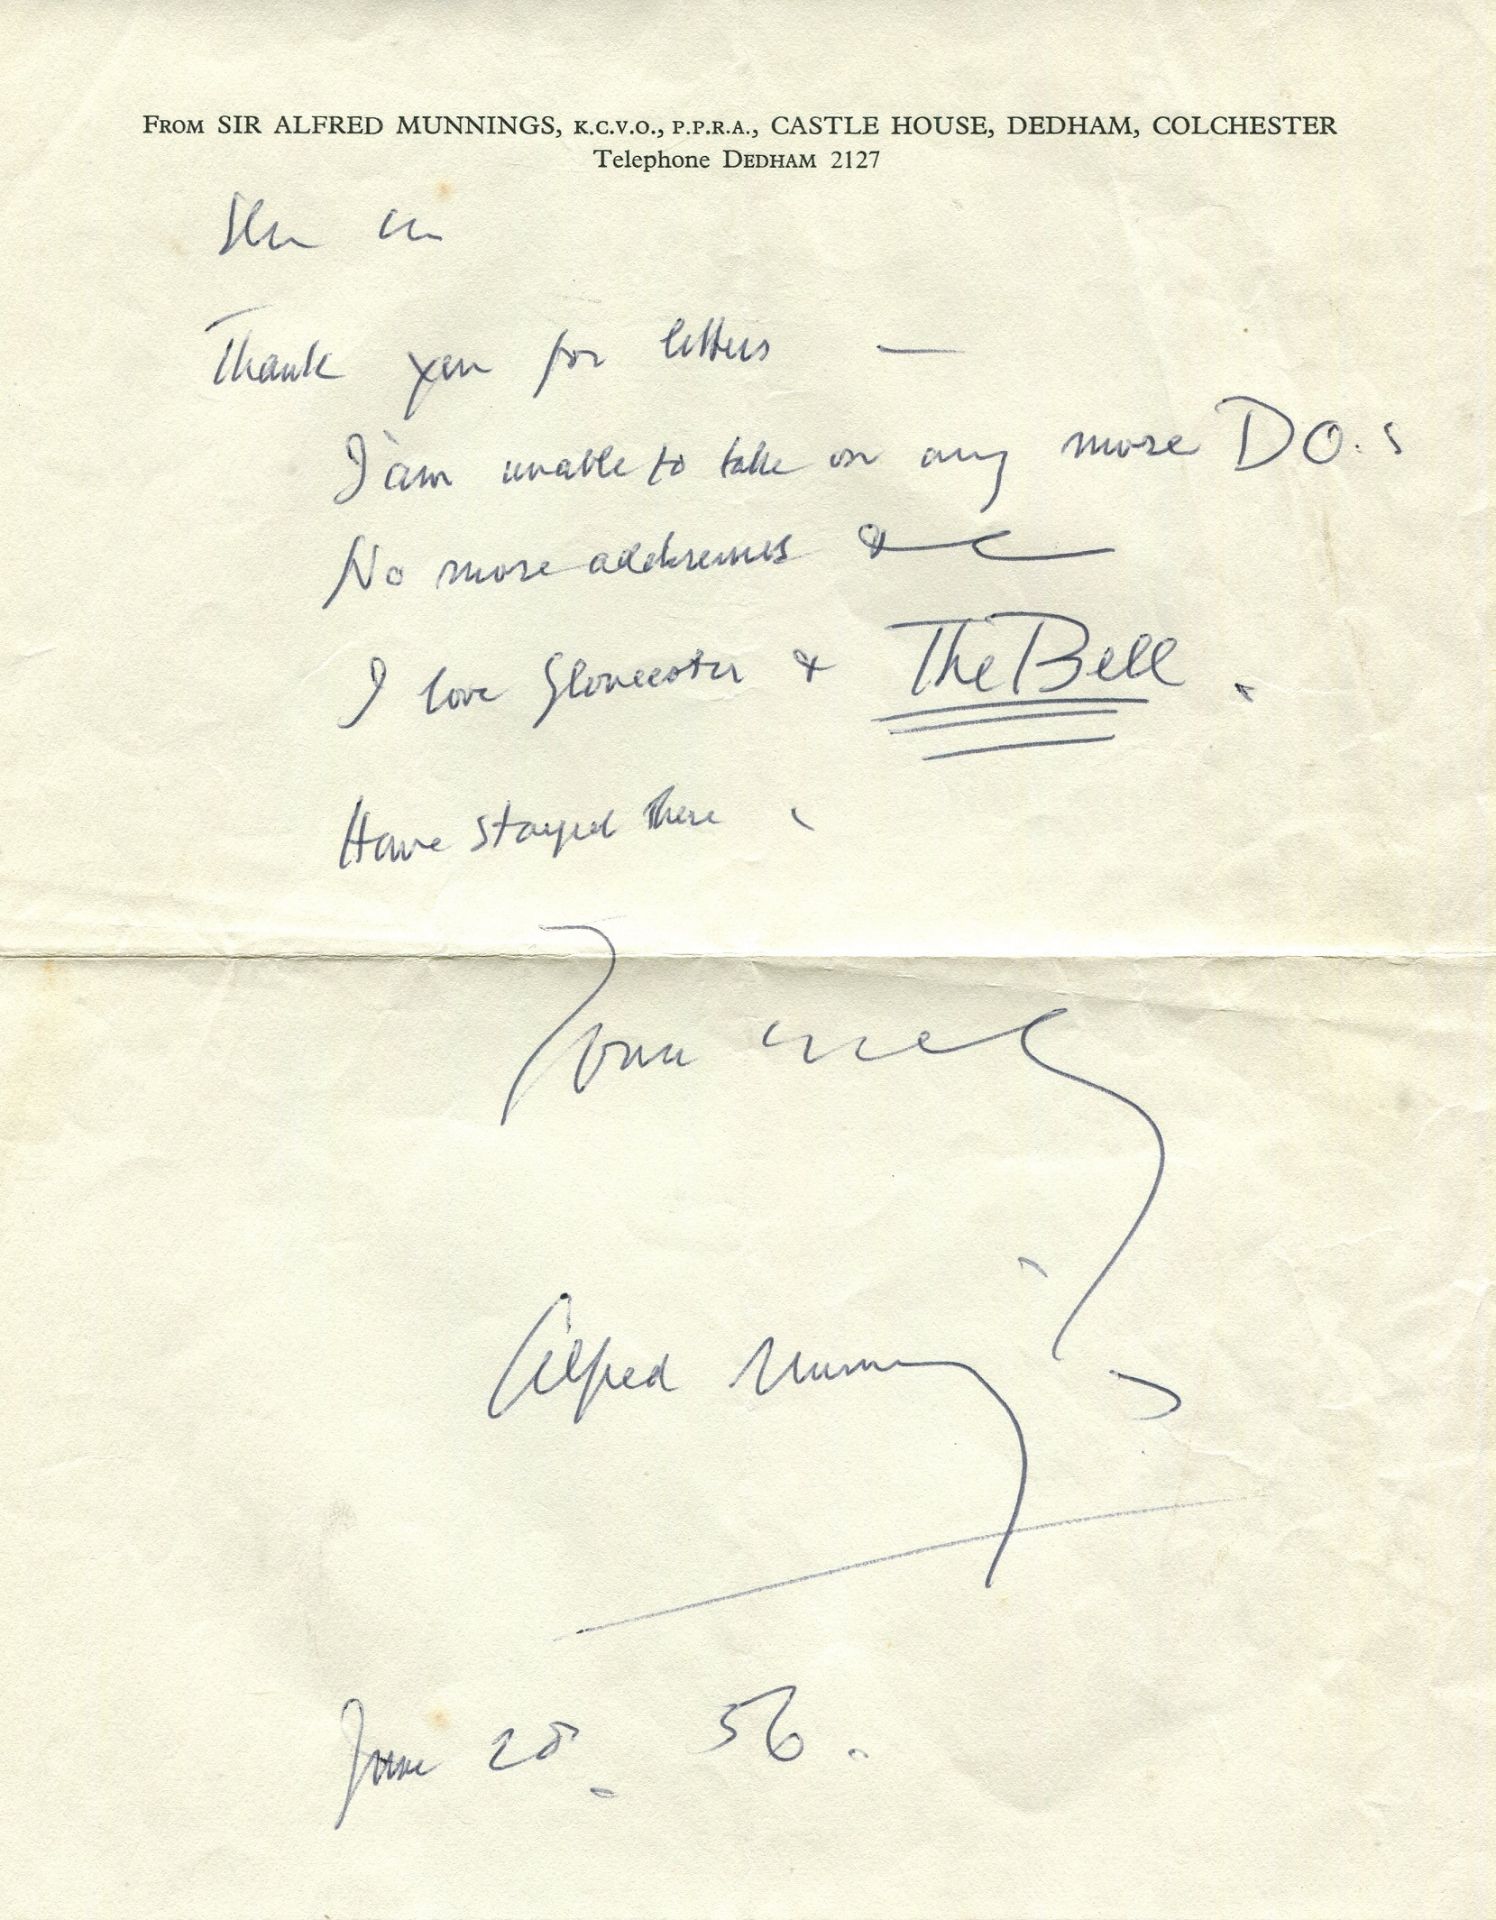 From SIR ALFRED MUNNINGS, K.C.V.O., P.P.R.A., CASTLE HOUSE, DEDHAM, COLCHESTER
Telephone DEDHAM 2127
Dear Sir
Thank you for letters —
I am unable to take on any more DO.s
No more addresses &c
I love Gloucester & The Bell.
Have stayed there.
Yours
Alfred Munnings
June 28. 56.